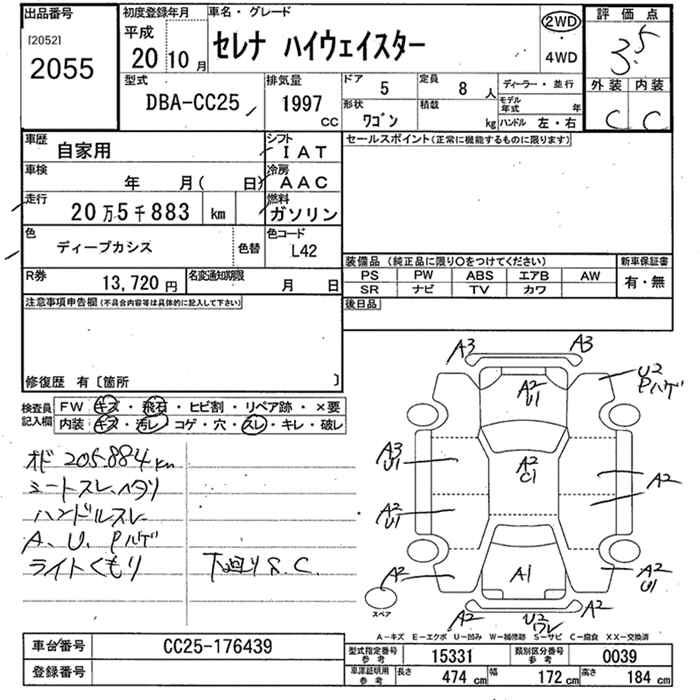 出品番号 初度登録年月 車名・グレード 評価点
[2052]
2055
平成
20 10月
セレナ ハイウェイスター
2WD
4WD
3.5
型式
DBA-CC25
排気量
1997 CC
ドア 5
定員 8人
ディーラー・並行
外装 内装
形状
ワゴン
積載 kg
モデル年式 年
ハンドル 左・右
C C
車歴
自家用
シフト
IAT
セールスポイント(正常に機能するものに限ります)
車検
年 月( 日)
冷房
AAC
走行
20万5千883 km
燃料
ガソリン
色
ディープカシス
色替
色コード
L42
装備品(純正品に限り〇をつけてください) 新車保証書
PS PW ABS エアB AW
SR ナビ TV カワ
有・無
R券
13,720円
名変通知期限
月 日
後日品
注意事項申告欄(不具合内容等は具体的に記入して下さい)
修復歴 有〔箇所 〕
検査員記入欄
FW キズ・飛石・ヒビ割・リペア跡・×要
内装・キズ・汚レ・コゲ・穴・スレ・キレ・破レ
オド 205.884km
シートスレ、ヘタリ
ハンドルスレ
A、U、Pハゲ
ライトくもり 下回りS.C.
A3 A3
A2
U1
U2
Pハゲ
A3
U1
A2
C1
A2
A2
U1
A2
A1
A2
U1
A2
U2
ワレ
A2
スペア
A−キズ E−エクボ U−凹み W−補修跡 S−サビ C−腐食 XX−交換済
車台番号 CC25-176439
登録番号
型式指定番号 参考 15331 類別区分番号 参考 0039
車庫証明用 参考 長さ 474cm 幅 172cm 高さ 184cm